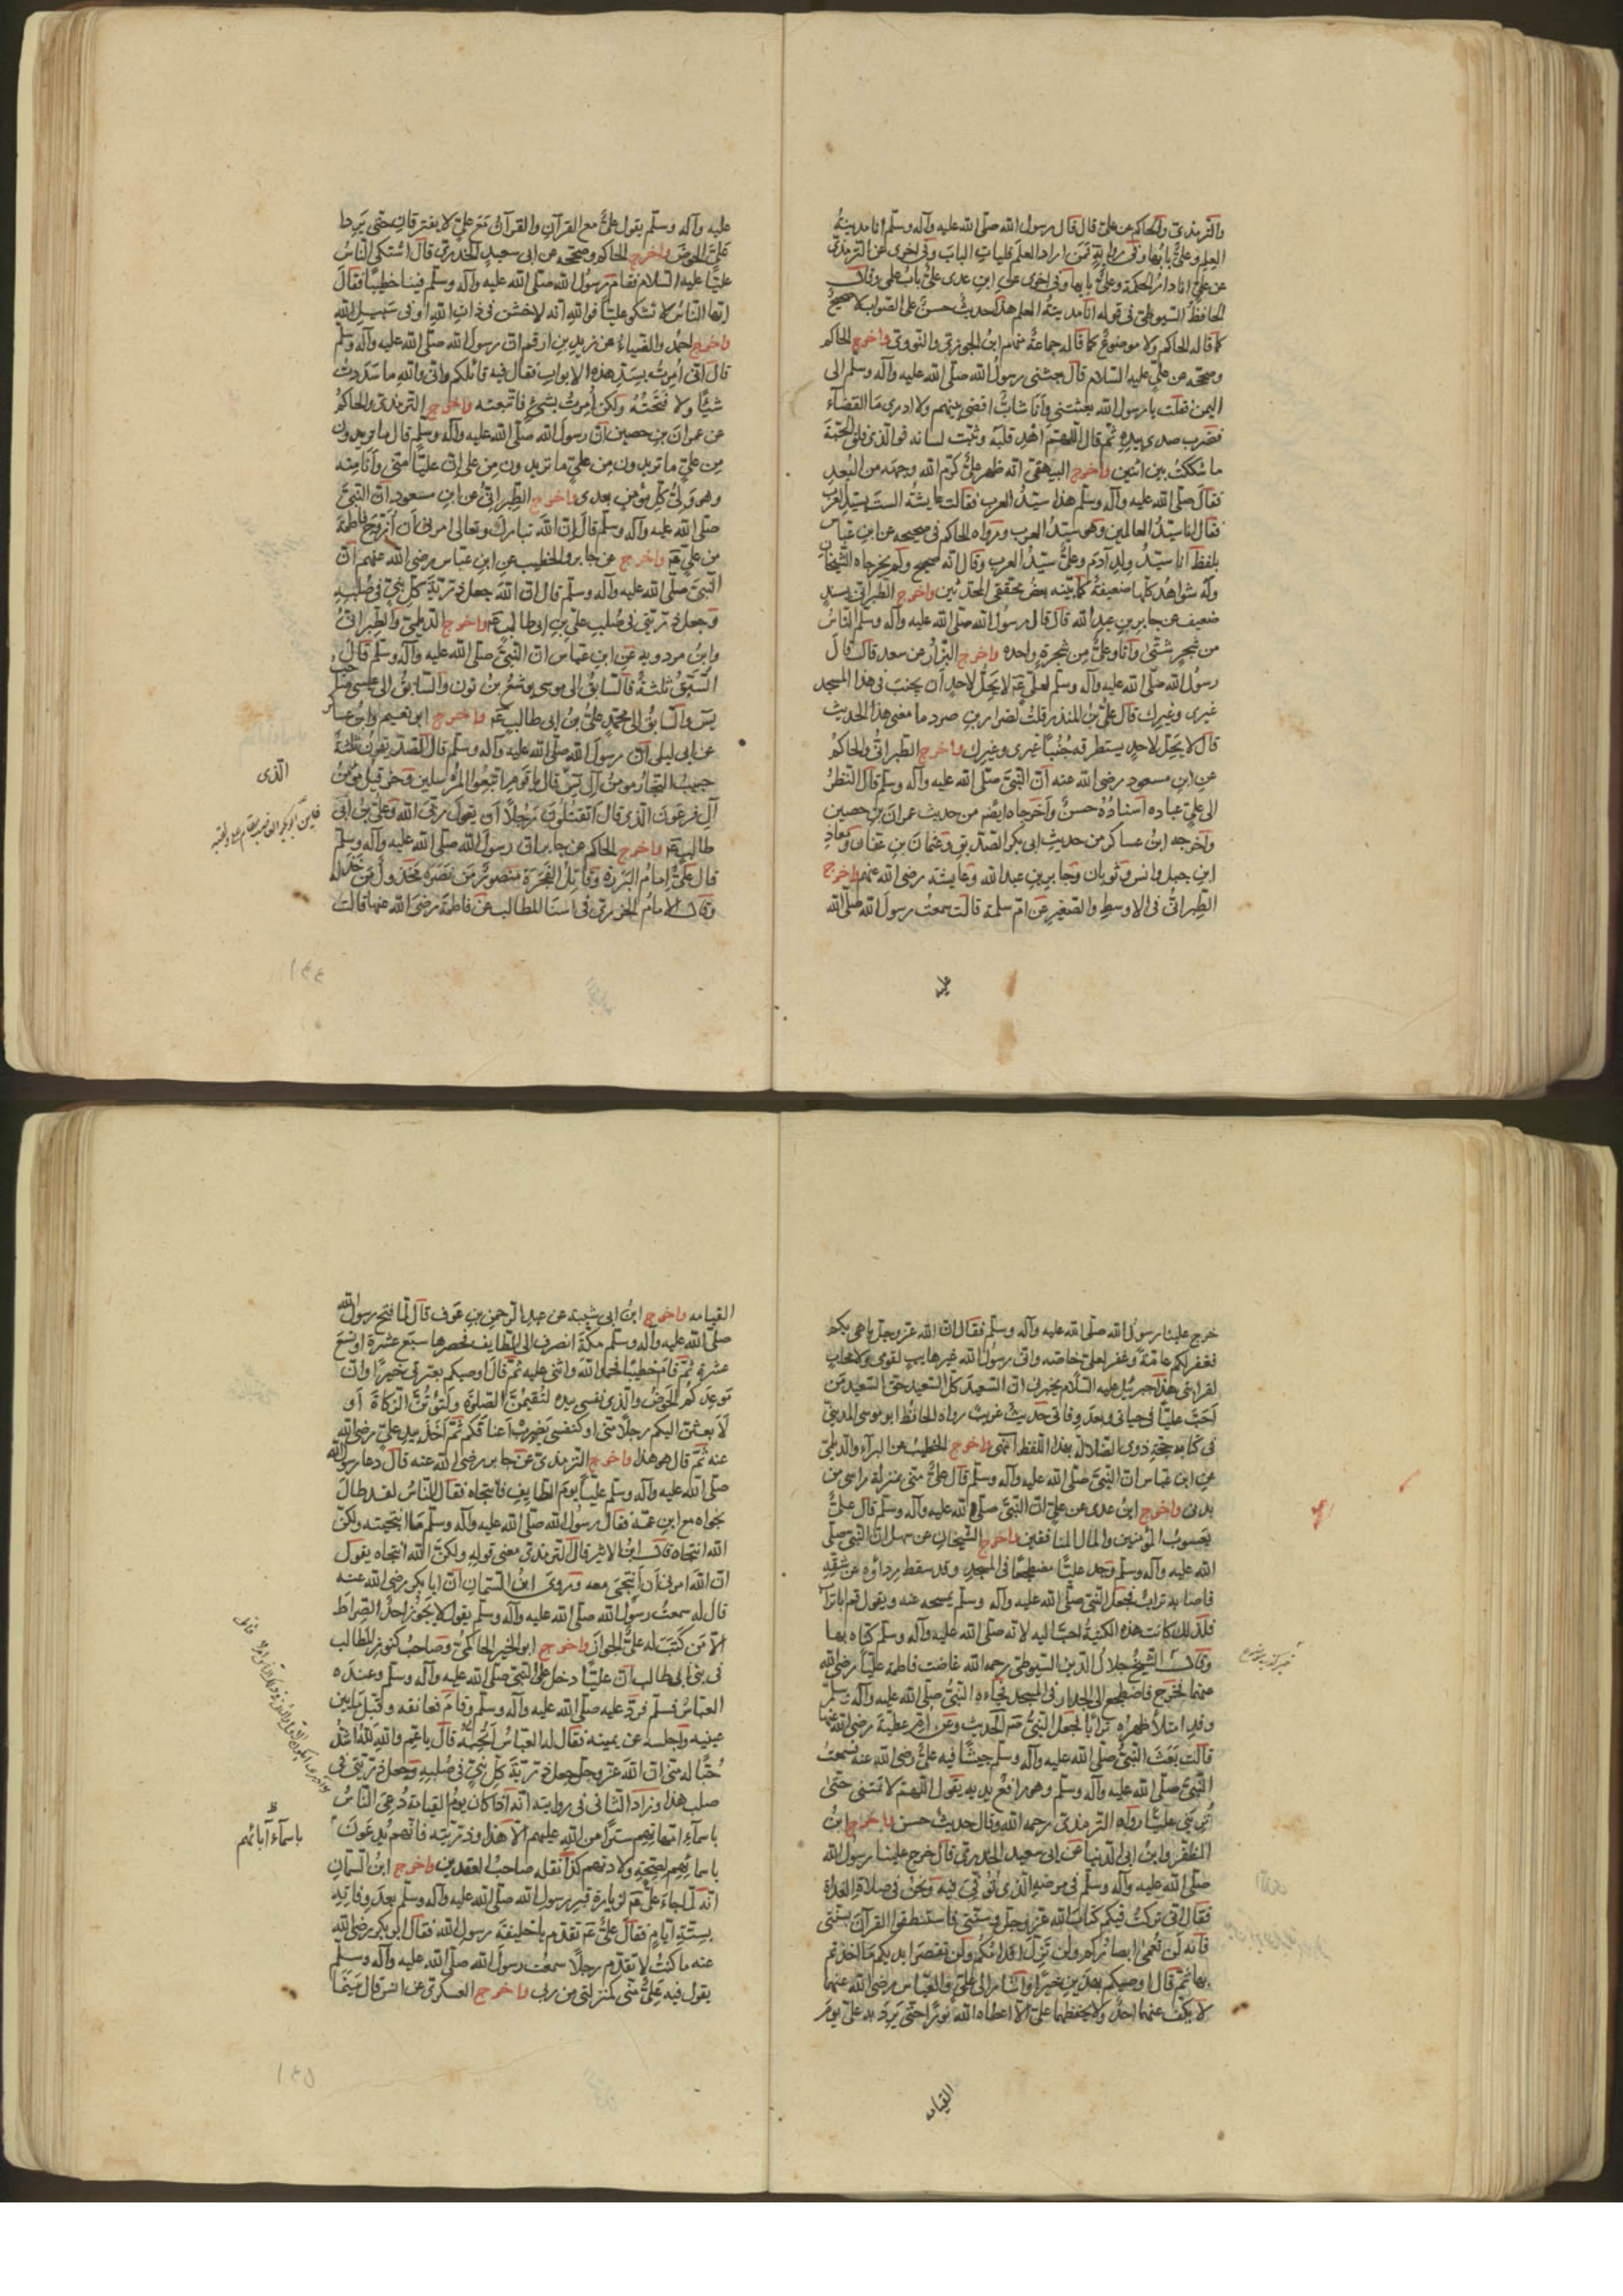 والترمذي والحاكم عن علي قال قال رسول الله صلى الله عليه وآله وسلم انا مدينة
العلم وعلي بابها وفي رواية فمن اراد العلم فليات الباب وفي اخرى عن الترمذي
عن علي انا دار الحكمة وعلي بابها وفي اخرى عن ابن عدي علي باب علمي وقال
الحافظ السيوطي في قوله انا مدينة العلم هذا حديث حسن على الصواب لا صحيح
كما قاله الحاكم ولا موضوع كما قاله جماعة منهم ابن الجوزي والنووي واخرج الحاكم
وصححه عن علي عليه السلام قال بعثني رسول الله صلى الله عليه وآله وسلم الى
اليمن فقلت يا رسول الله بعثتني وانا شاب اقضي بينهم ولا ادري ما القضاء
فضرب صدري بيده ثم قال اللهم اهد قلبه وثبت لسانه فوالذي فلق الحبة
ما شككت بين اثنين واخرج البيهقي انه ظهر علي كرم الله وجهه من البعد
فقال صلى الله عليه وآله وسلم هذا سيد العرب فقالت عايشة الست بسيد العرب
فقال انا سيد العالمين وهو سيد العرب ورواه الحاكم في صحيحه عن ابن عباس
بلفظ انا سيد ولد آدم وعلي سيد العرب وقال انه صحيح ولم يخرجاه الشيخان
وله شواهد كلها ضعيفة كما بينه بعض محققي المحدثين واخرج الطبراني بسند
ضعيف عن جابر بن عبد الله قال قال رسول الله صلى الله عليه وآله وسلم الناس
من شجر شتى وانا وعلي من شجرة واحده واخرج البزار عن سعد قال قال
رسول الله صلى الله عليه وآله وسلم لعلي عم لا يحل لاحد ان يجنب في هذا المسجد
غيري وغيرك قال علي بن المنذر قلت لضرار بن صرد ما معنى هذا الحديث
قال لا يحل لاحد يستطرقه جنبا غيري وغيرك واخرج الطبراني والحاكم
عن ابن مسعود رضي الله عنه ان النبي صلى الله عليه وآله وسلم قال النظر
الى علي عباده اسناده حسن واخرجاه ايضا من حديث عمران بن حصين
واخرجه ابن عساكر من حديث ابي بكر الصديق وعثمان بن عفان ومعاذ
ابن جبل وانس وثوبان وجابر بن عبد الله وعايشة رضي الله عنهم واخرج
الطبراني في الاوسط والصغير عن ام سلمة قالت سمعت رسول الله صلى الله
عليه
عليه وآله وسلم يقول علي مع القرآن والقرآن مع علي لا يفترقان حتى يردا
علي الحوض واخرج الحاكم وصححه عن ابي سعيد الخدري قال اشتكى الناس
عليا عليه السلام فقام رسول الله صلى الله عليه وآله وسلم فينا خطيبا فقال
ايها الناس لا تشكو عليا فوالله انه لاخشن في ذات الله او في سبيل الله
واخرج احمد والضياء عن زيد بن ارقم ان رسول الله صلى الله عليه وآله وسلم
قال اني امرت بسد هذه الابواب فقال فيه قائلكم واني والله ما سددت
شيئا ولا فتحته ولكن امرت بشئ فاتبعته واخرج الترمذي والحاكم
عن عمران بن حصين ان رسول الله صلى الله عليه وآله وسلم قال ما تريدون
من علي ما تريدون من علي ما تريدون من علي ان عليا مني وانا منه
وهو ولي كل مؤمن بعدي واخرج الطبراني عن ابن مسعود ان النبي
صلى الله عليه وآله وسلم قال ان الله تبارك وتعالى امرني ان ازوج فاطمة
من علي عم واخرج عن جابر والخطيب عن ابن عباس رضي الله عنهم ان
النبي صلى الله عليه وآله وسلم قال ان الله جعل ذرية كل نبي في صلبه
وجعل ذريتي في صلب علي بن ابي طالب عم واخرج الديلمي والطبراني
وابن مردويه عن ابن عباس ان النبي صلى الله عليه وآله وسلم قال
السبق ثلثة فالسابق الى موسى يوشع بن نون والسابق الى عيسى صاحب
يس والسابق الى محمد علي بن ابي طالب عم واخرج ابو نعيم وابن عساكر
عن ابي ليلى ان رسول الله صلى الله عليه وآله وسلم قال الصديقون ثلثة
حبيب النجار مومن آل يس قال يا قوم اتبعوا المرسلين وحزقيل مؤمن
آل فرعون الذي قال اتقتلون رجلا ان يقول ربي الله وعلي بن ابي
طالب عم واخرج الحاكم عن جابر ان رسول الله صلى الله عليه وآله وسلم
قال علي امام البررة وقاتل الفجرة منصور من نصره مخذول من خذله
وقال الامام الجزري في اسنا المطالب عن فاطمة رضي الله عنها قالت
الذي
١٤٤
خرج علينا رسول الله صلى الله عليه وآله وسلم فقال ان الله عز وجل باهى بكم
فغفر لكم عامة وغفر لعلي خاصه واني رسول الله غير هايب لقومي ولا محاب
لقرابتي هذا جبرئيل عليه السلام يخبرني ان السعيد كل السعيد حق السعيد من
احب عليا في حياتي وبعد وفاتي حديث غريب رواه الحافظ ابو موسى المديني
في كتابه بهذا اللفظ انتهى واخرج الخطيب عن البراء والديلمي
عن ابن عباس ان النبي صلى الله عليه وآله وسلم قال علي مني بمنزلة راسي من
بدني واخرج ابن عدي عن علي ان النبي صلى الله عليه وآله وسلم قال علي
يعسوب المؤمنين والمال المنافقين واخرج الشيخان عن سهل ان النبي صلى
الله عليه وآله وسلم وجد عليا مضطجعا في المسجد وقد سقط رداؤه عن شقه
فاصابه تراب فجعل النبي صلى الله عليه وآله وسلم يمسحه عنه ويقول قم ابا تراب
فلذلك كانت هذه الكنية احب اليه لانه صلى الله عليه وآله وسلم كناه بها
وقال الشيخ جلال الدين السيوطي رحمه الله غاضت فاطمة عليا رضي الله
عنهما فخرج فاضطجع الى الجدار في المسجد فجاءه النبي صلى الله عليه وآله وسلم
وقد امتلأ ظهره ترابا فجعل النبي الحديث وعن ام عطية رضي الله عنها
قالت بعث النبي صلى الله عليه وآله وسلم جيشا فيه علي رضي الله عنه فسمعت
النبي صلى الله عليه وآله وسلم وهو رافع يديه يقول اللهم لا تمتني حتى
تريني عليا رواه الترمذي رحمه الله وقال حديث حسن واخرج ابن
المظفر وابن ابي الدنيا عن ابي سعيد الخدري قال خرج علينا رسول الله
صلى الله عليه وآله وسلم في مرضه الذي توفي فيه ونحن في صلاة الغداة
فقال اني تركت فيكم كتاب الله عز وجل وسنتي فاستنطقوا القرآن بسنتي
فانه لن تعمى ابصاركم ولن تزل اقدامكم ولن تقصر ايديكم ما اخذتم
بهما ثم قال اوصيكم بهذين خيرا واشار الى علي والعباس رضي الله عنهما
لا يكف عنهما احد ولا يحفظهما علي الا اعطاه الله نورا حتى يرد به علي يوم
القيامه
القيامه واخرج ابن ابي شيبة عن عبد الرحمن بن عوف قال لما فتح رسول الله
صلى الله عليه وآله وسلم مكة انصرف الى الطايف فحصرها سبع عشرة او تسع
عشرة ثم قام خطيبا فحمد الله واثنى عليه ثم قال اوصيكم بعترتي خيرا وان
موعدكم الحوض والذي نفسي بيده لتقيمن الصلوة ولتؤتن الزكاة او
لابعثن اليكم رجلا مني او كنفسي يضرب اعناقكم ثم اخذ بيد علي رضي الله
عنه ثم قال هو هذا واخرج الترمذي عن جابر رضي الله عنه قال دعا رسول الله
صلى الله عليه وآله وسلم عليا يوم الطايف فانتجاه فقال الناس لقد طال
نجواه مع ابن عمه فقال رسول الله صلى الله عليه وآله وسلم ما انتجيته ولكن
الله انتجاه قال ابن الاثير قال الترمذي معنى قوله ولكن الله انتجاه يقول
ان الله امرني ان انتجي معه وروى ابن السمان ان ابا بكر رضي الله عنه
قال له سمعت رسول الله صلى الله عليه وآله وسلم يقول لا يجوز احد الصراط
الا من كتب له علي الجواز واخرج ابو الخير الحاكمي وصاحب كنوز المطالب
في بني ابي طالب ان عليا دخل على النبي صلى الله عليه وآله وسلم وعنده
العباس فسلم فرد عليه صلى الله عليه وآله وسلم وقام فعانقه وقبل ما بين
عينيه واجلسه عن يمينه فقال له العباس اتحبه قال يا عم والله لله اشد
حبا له مني ان الله عز وجل جعل ذرية كل نبي في صلبه وجعل ذريتي في
صلب هذا وزاد الثاني في روايته انه اذا كان يوم القيامة دعي الناس
باسماء امهاتهم سترا من الله عليهم الا هذا وذريته فانهم يدعون
باسمائهم لصحة ولادتهم كذا نقله صاحب العقدين واخرج ابن السمان
انه لما جاء علي عم لزيارة قبر رسول الله صلى الله عليه وآله وسلم بعد وفاته
بستة ايام فقال علي عم تقدم يا خليفة رسول الله فقال ابو بكر رضي الله
عنه ما كنت لا تقدم رجلا سمعت رسول الله صلى الله عليه وآله وسلم
يقول فيه علي مني كمنزلتي من ربي واخرج العسكري عن انس قال بينما
باسماء آبائهم
١٤٥